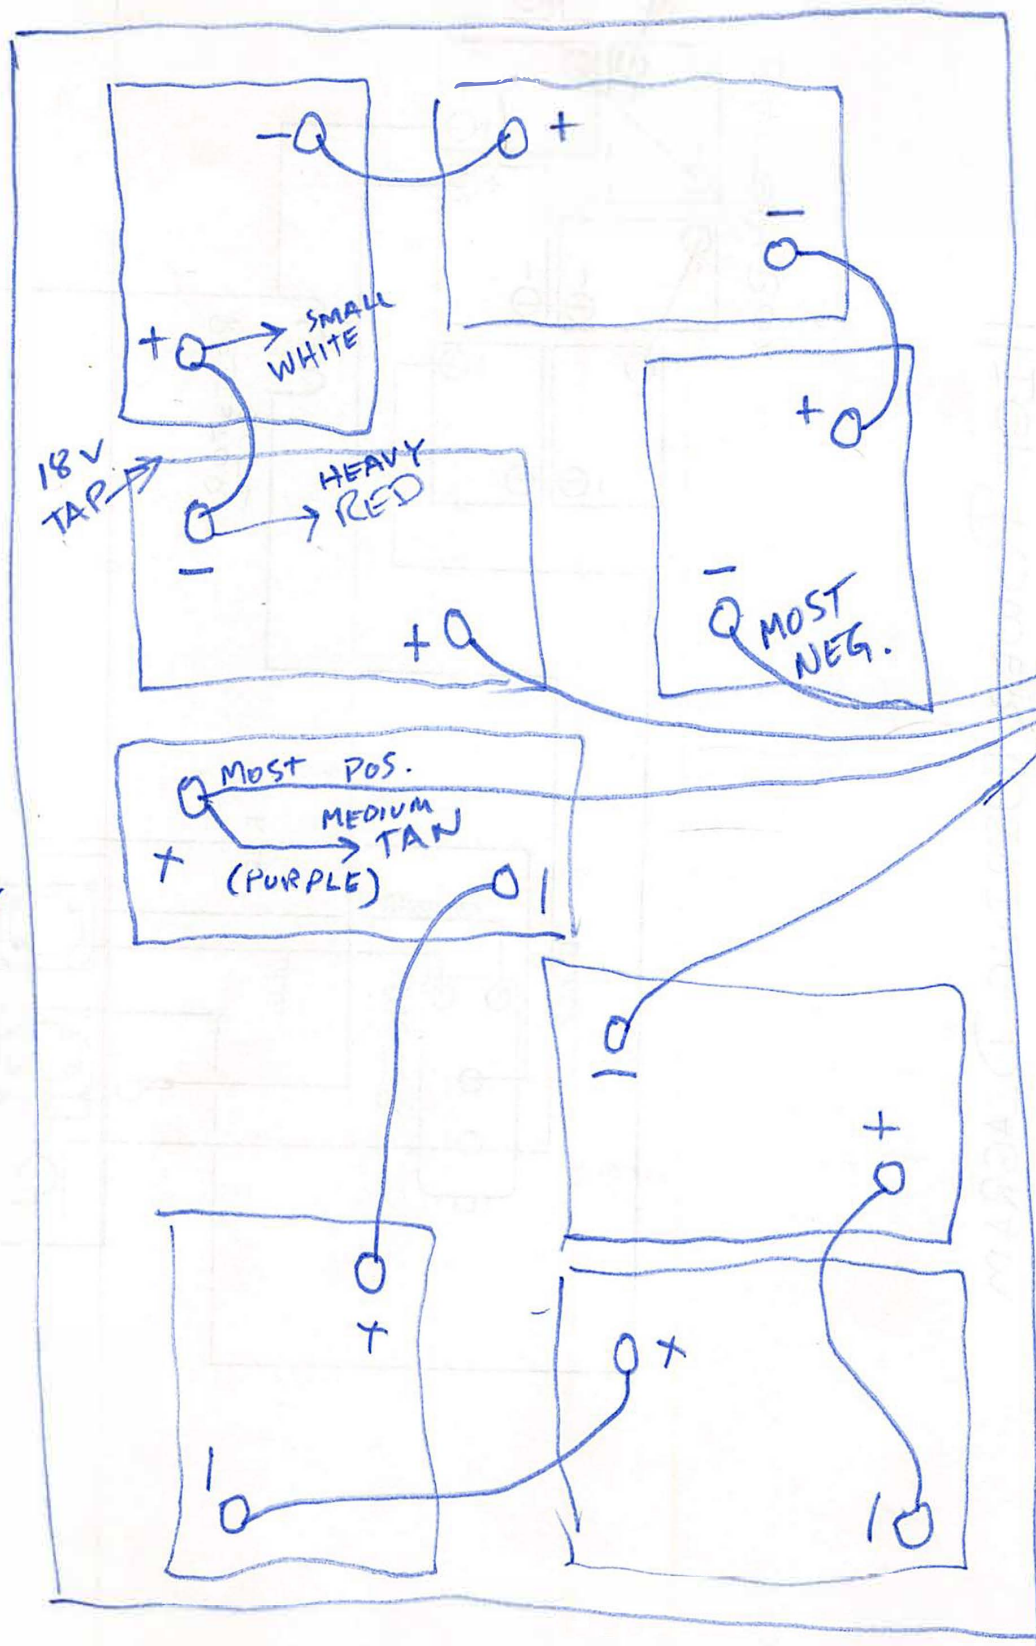 - +
-
+ SMALL
WHITE
+
18 V.
TAP
HEAVY
RED
-
-
MOST
NEG.
+
MOST POS.
MEDIUM
TAN
+
(PURPLE)
-
-
+
+
+
-
-